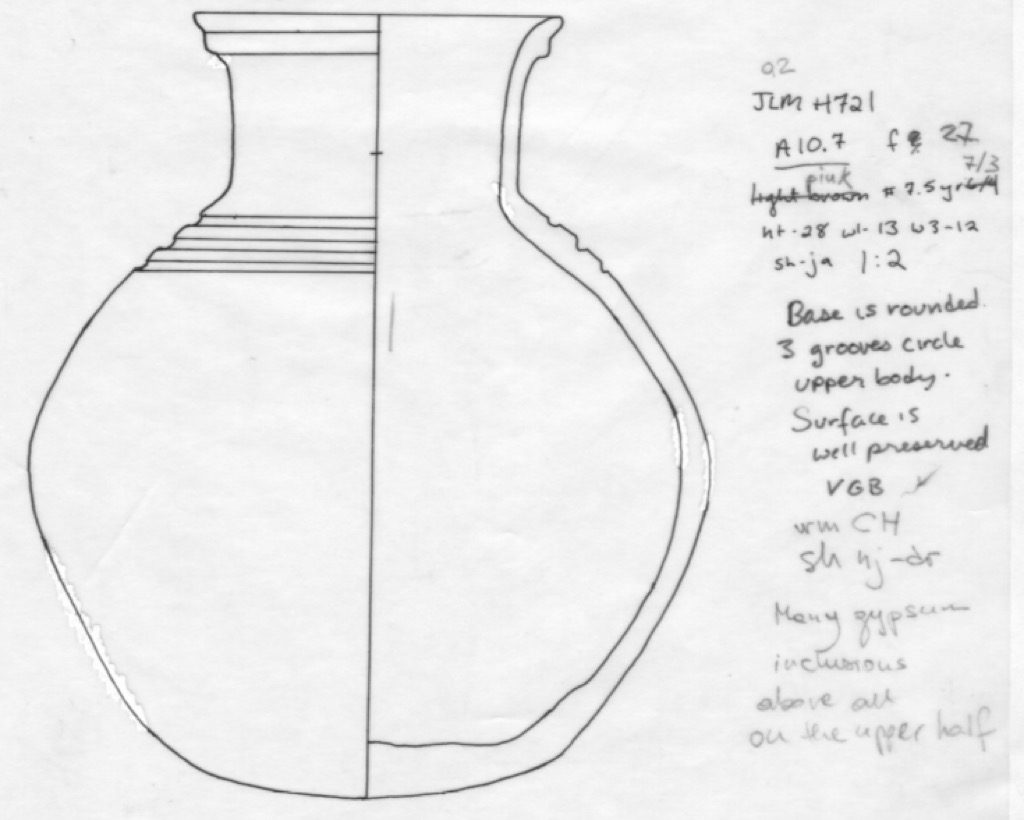 Q2
JLM H721
A10.7 f 27
7/3
pink
light brown # 7.5 yr 6/4
ht-28 wl-13 w3-12
sh-ja 1:2
Base is rounded.
3 grooves circle
upper body.
Surface is
well preserved
VGB ✓
wm CH
sh nj-dr
Many gypsum
inclusions
above all
on the upper half